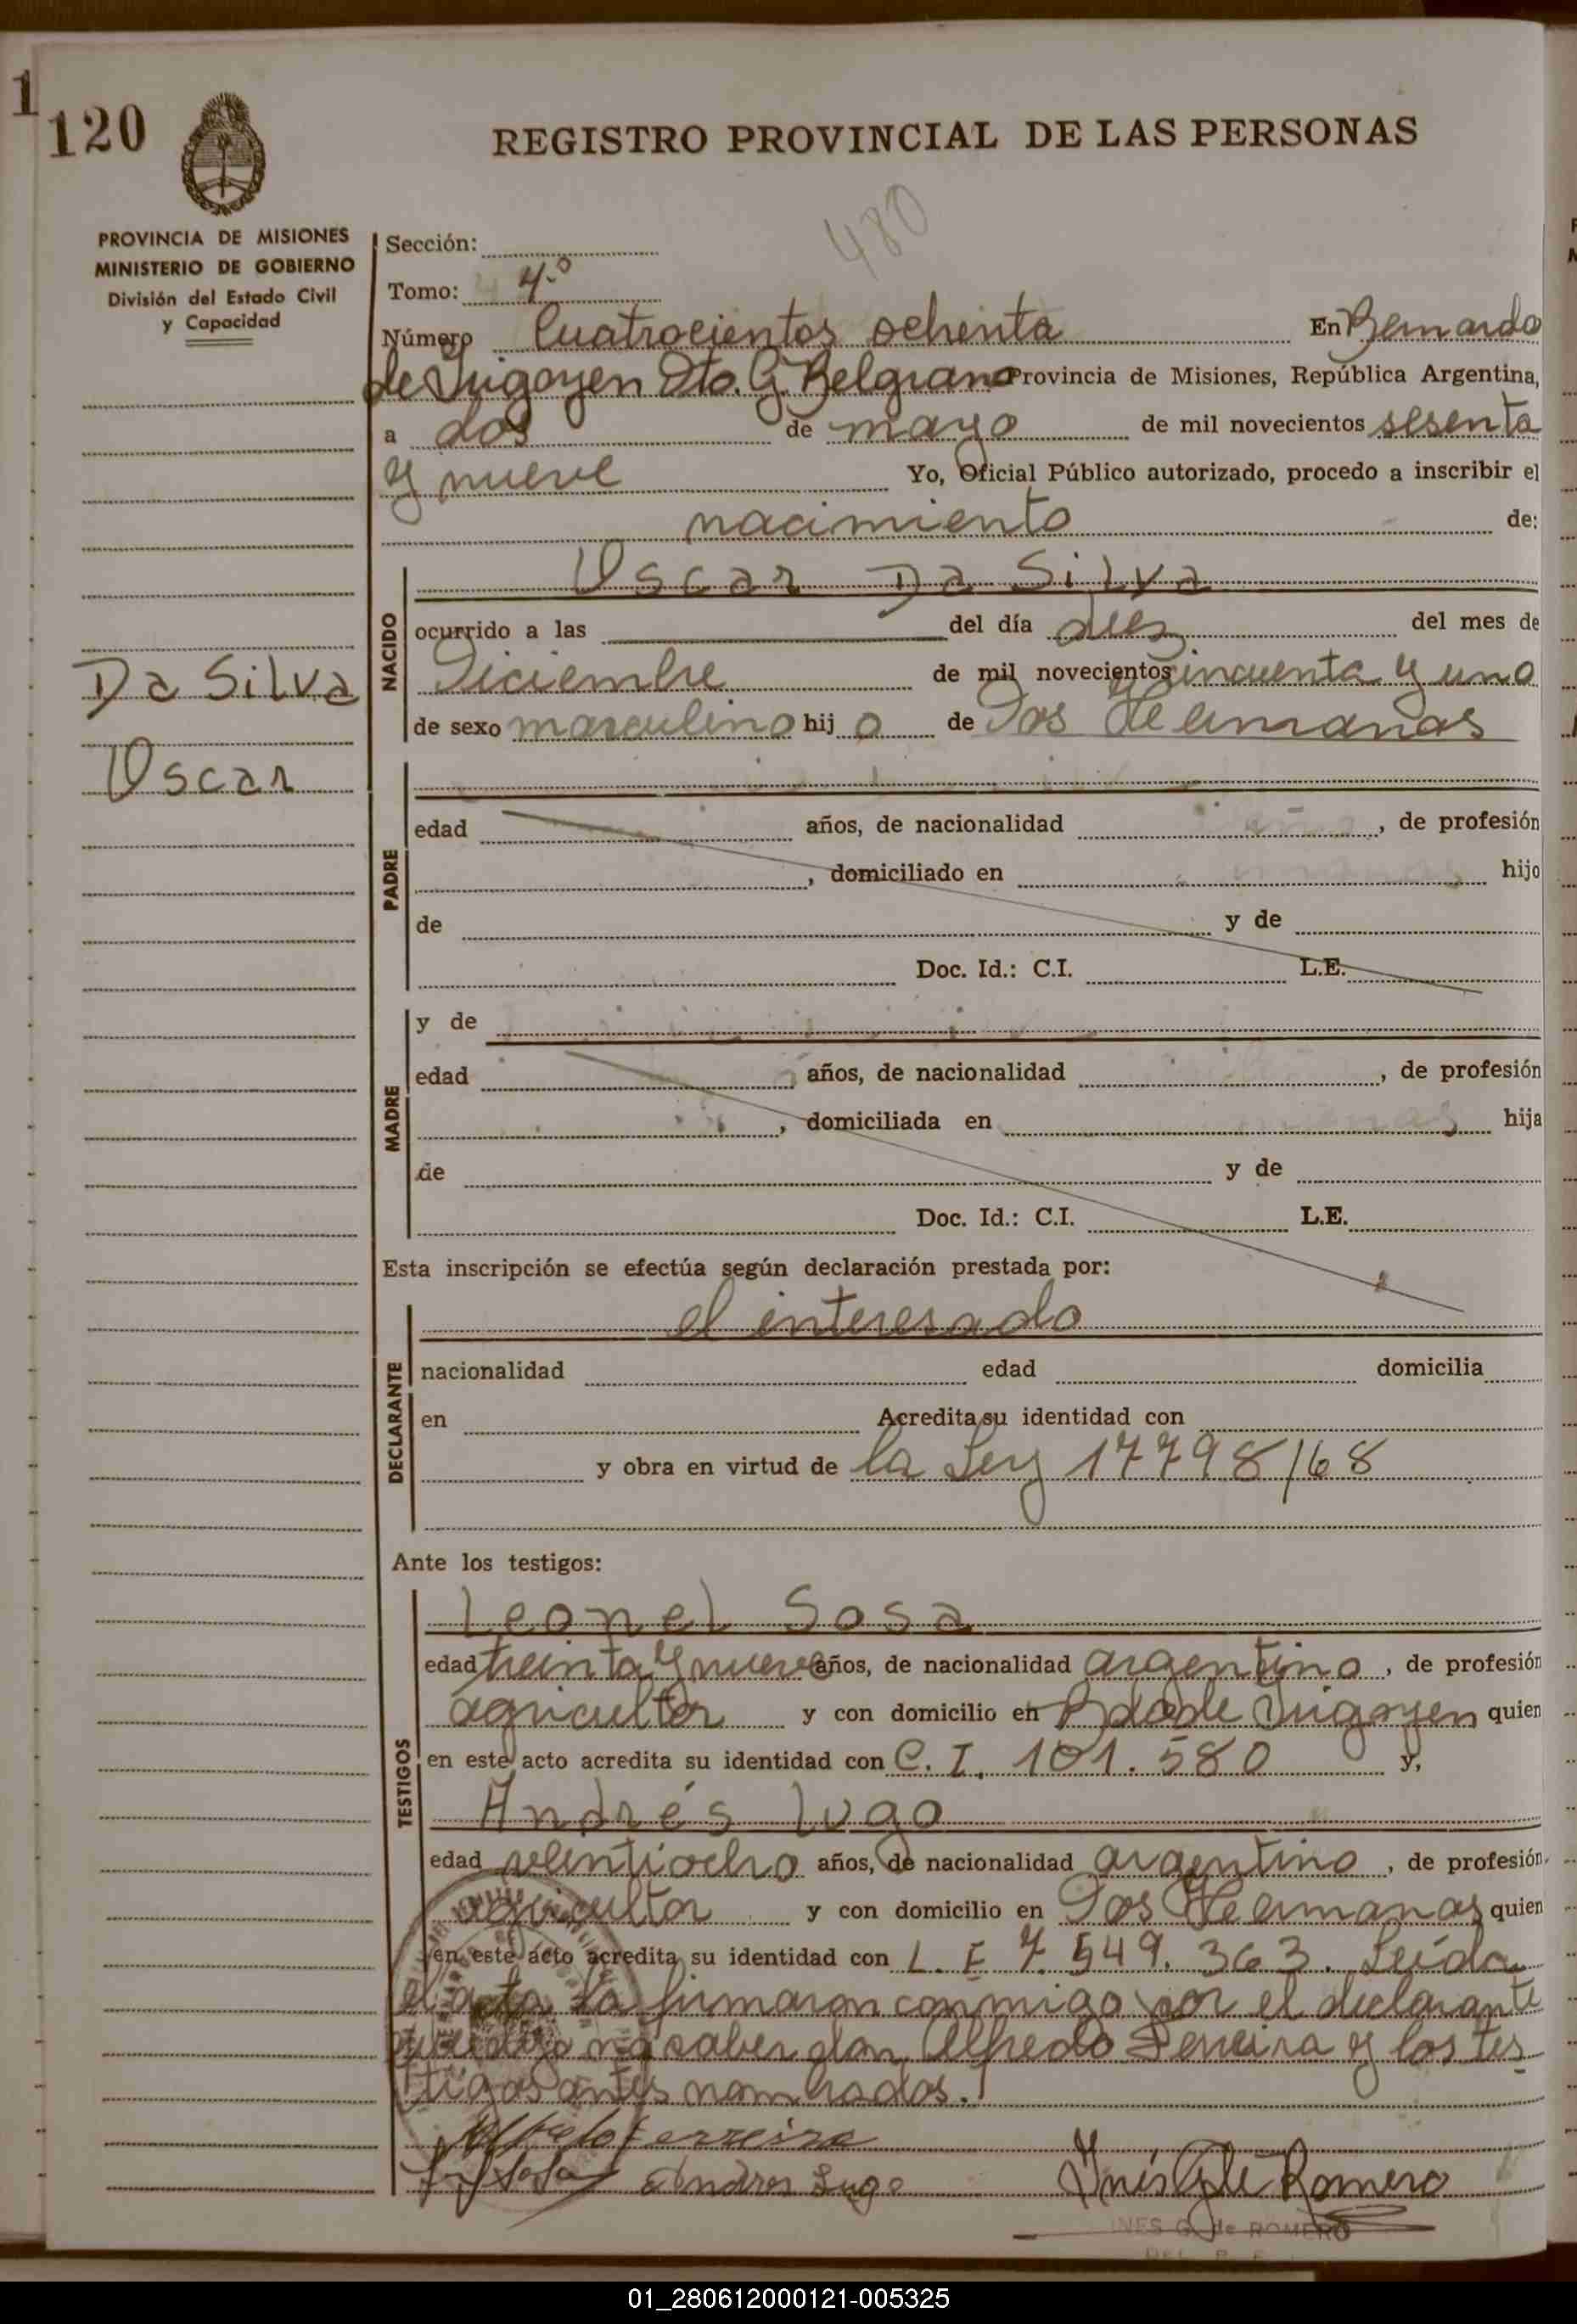 1
120
REGISTRO PROVINCIAL DE LAS PERSONAS
480
PROVINCIA DE MISIONES
MINISTERIO DE GOBIERNO
División del Estado Civil
y Capacidad
Da Silva
Oscar
Sección:
Tomo: 4.º
Número Cuatrocientos ochenta En Bernardo
de Irigoyen Dto. G. Belgrano Provincia de Misiones, República Argentina,
a dos de mayo de mil novecientos sesenta
y nueve Yo, Oficial Público autorizado, procedo a inscribir el
nacimiento de:
NACIDO
Oscar Da Silva
ocurrido a las del día diez del mes de
Diciembre de mil novecientos cincuenta y uno
de sexo masculino hijo de Dos Hermanas
PADRE
edad años, de nacionalidad , de profesión
, domiciliado en hijo
de y de
Doc. Id.: C.I. L.E.
MADRE
y de
edad años, de nacionalidad , de profesión
, domiciliada en hija
de y de
Doc. Id.: C.I. L.E.
Esta inscripción se efectúa según declaración prestada por:
DECLARANTE
el interesado
nacionalidad edad domicilia
en Acredita su identidad con
y obra en virtud de la Ley 17798/68
Ante los testigos:
TESTIGOS
Leonel Sosa
edad treinta y nueve años, de nacionalidad argentino, de profesión
agricultor y con domicilio en Bdo de Irigoyen quien
en este acto acredita su identidad con C. I. 101.580 y,
Andrés Lugo
edad veintiocho años, de nacionalidad argentino, de profesión
agricultor y con domicilio en Dos Hermanas quien
en este acto acredita su identidad con L. E 7.549.363. Leída
el acta la firmaron conmigo por el declarante
que dijo no saber don Alfredo Ferreira y los tes
tigos antes nombrados.
Alfredo Ferreira
Sosa Andres Lugo Inés G de Romero
INES G. de ROMERO
01_280612000121-005325